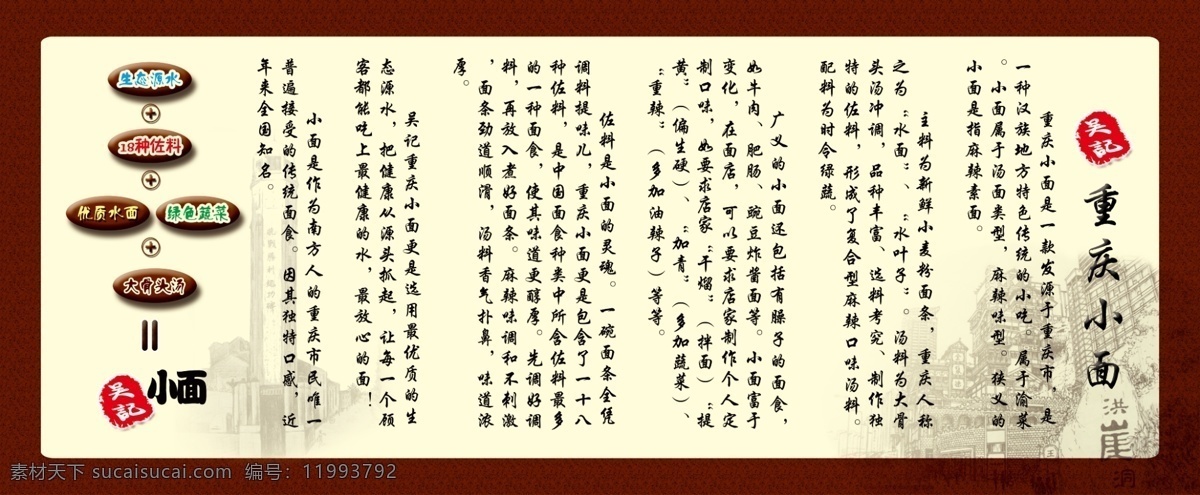 吴記
重庆小面
重庆小面是一款发源于重庆市，是
一种汉族地方特色传统的小吃。属于渝菜
。小面属于汤面类型，麻辣味型。狭义的
小面是指麻辣素面。
主料为新鲜小麦粉面条，重庆人称
之为“水面”、“水叶子”。汤料为大骨
头汤冲调，品种丰富、选料考究、制作独
特的佐料，形成了复合型麻辣口味汤料。
配料为时令绿蔬。
广义的小面还包括有臊子的面食，
如牛肉、肥肠、豌豆炸酱面等。小面富于
变化，在面店，可以要求店家制作个人定
制口味，如要求店家“干熘”（拌面）“提
黄”（偏生硬）、“加青”（多加蔬菜）、
“重辣”（多加油辣子）等等。
佐料是小面的灵魂。一碗面条全凭
调料提味儿，重庆小面更是包含了一十八
种佐料，是中国面食种类中所含佐料最多
的一种面食，使其味道更醇厚。先调好调
料，再放入煮好面条。麻辣味调和不刺激
，面条劲道顺滑，汤料香气扑鼻，味道浓
厚。
吴记重庆小面更是选用最优质的生
态源水，把健康从源头抓起，让每一个顾
客都能吃上最健康的水，最放心的面！
小面是作为南方人的重庆市民唯一
普遍接受的传统面食。因其独特口感，近
年来全国知名。
生态源水
+
18种佐料
+
优质水面 绿色蔬菜
+
大骨头汤
吴記
小面
洪崖洞
素材天下 sucaisucai.com 编号：11993792